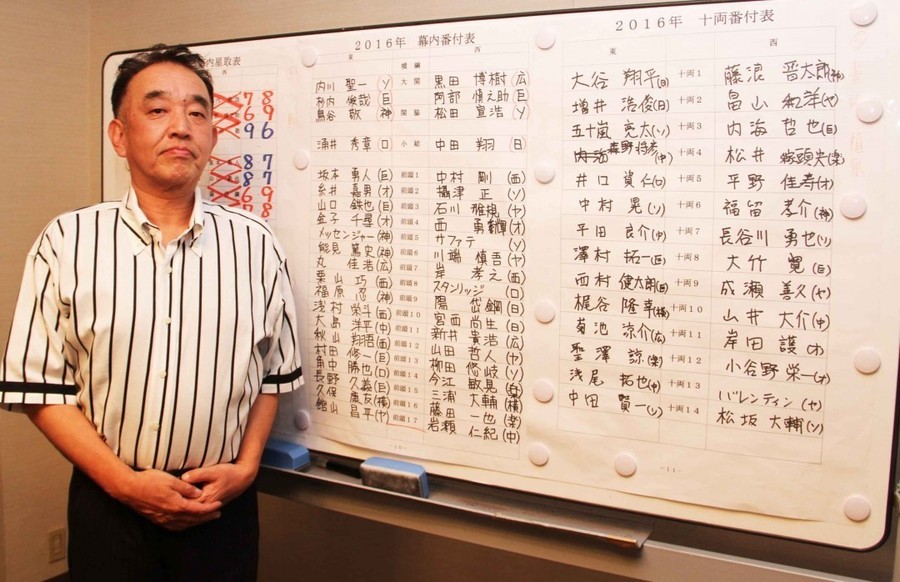 内星取表
西
78
69
96
87
87
69
78
2016年 幕内番付表
東 西
横綱
内川 聖一(ソ) 大関 黒田 博樹(広)
杉内 俊哉(巨) 阿部 慎之助(巨)
鳥谷 敬(神) 関脇 松田 宣浩(ソ)
涌井 秀章(ロ) 小結 中田 翔(日)
坂本 勇人(巨) 前頭1 中村 剛(西)
糸井 嘉男(オ) 前頭2 攝津 正(ソ)
山口 鉄也(巨) 前頭3 石川 雅規(ヤ)
金子 千尋(オ) 前頭4 西 勇輝(オ)
メッセンジャー(神) 前頭5 サファテ(ソ)
能見 篤史(神) 前頭6 川端 慎吾(ヤ)
丸 佳浩(広) 前頭7 岸 孝之(西)
栗山 巧(西) 前頭8 スタンリッジ(ロ)
福原 忍(神) 前頭9 陽 岱鋼(日)
浅村 栄斗(西) 前頭10 宮西 尚生(日)
大島 洋平(中) 前頭11 新井 貴浩(広)
秋山 翔吾(西) 前頭12 山田 哲人(ヤ)
村田 修一(巨) 前頭13 柳田 悠岐(ソ)
角中 勝也(ロ) 前頭14 今江 敏晃(楽)
長野 久義(巨) 前頭15 三浦 大輔(横)
久保 康友(横) 前頭16 藤田 一也(楽)
館山 昌平(ヤ) 前頭17 岩瀬 仁紀(中)
-10-
2016年 十両番付表
東 西
大谷 翔平(日) 十両1 藤浪 晋太郎(神)
増井 浩俊(日) 十両2 畠山 和洋(ヤ)
五十嵐 亮太(ソ) 十両3 内海 哲也(巨)
森野 将彦(中) 十両4 松井 稼頭央(楽)
井口 資仁(ロ) 十両5 平野 佳寿(オ)
中村 晃(ソ) 十両6 福留 孝介(神)
平田 良介(中) 十両7 長谷川 勇也(ソ)
澤村 拓一(巨) 十両8 大竹 寛(巨)
西村 健太朗(巨) 十両9 成瀬 善久(ヤ)
梶谷 隆幸(横) 十両10 山井 大介(中)
菊池 涼介(広) 十両11 岸田 護(オ)
聖澤 諒(楽) 十両12 小谷野 栄一(オ)
浅尾 拓也(中) 十両13 バレンティン(ヤ)
中田 賢一(ソ) 十両14 松坂 大輔(ソ)
-11-